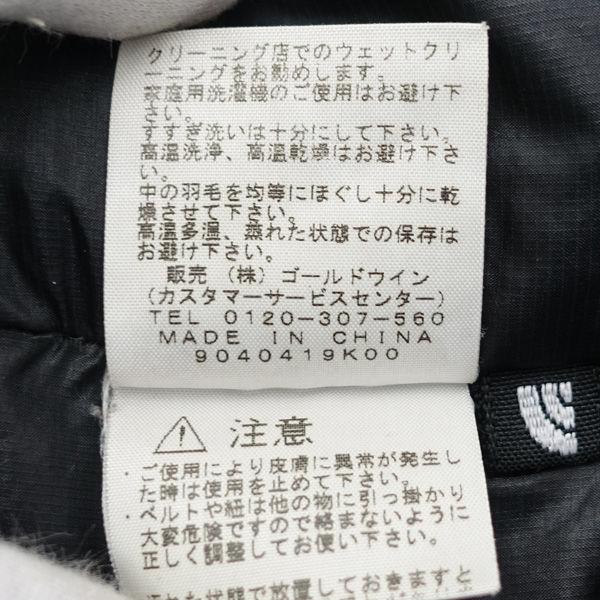 クリーニング店でのウェットクリ
ーニングをお勧めします。
家庭用洗濯機のご使用はお避け下
さい。
すすぎ洗いは十分にして下さい。
高温洗浄、高温乾燥はお避け下さ
い。
中の羽毛を均等にほぐし十分に乾
燥させて下さい。
高温多湿、蒸れた状態での保存は
お避け下さい。
販売 （株）ゴールドウイン
(カスタマーサービスセンター)
TEL 0120-307-560
MADE IN CHINA
9040419K00
注意
・ご使用により皮膚に異常が発生し
た時は使用を止めて下さい。
・ベルトや紐は他の物に引っ掛かり
大変危険ですので絡まないように
正しく調整してお使い下さい。
れた状態で放置しておきますと